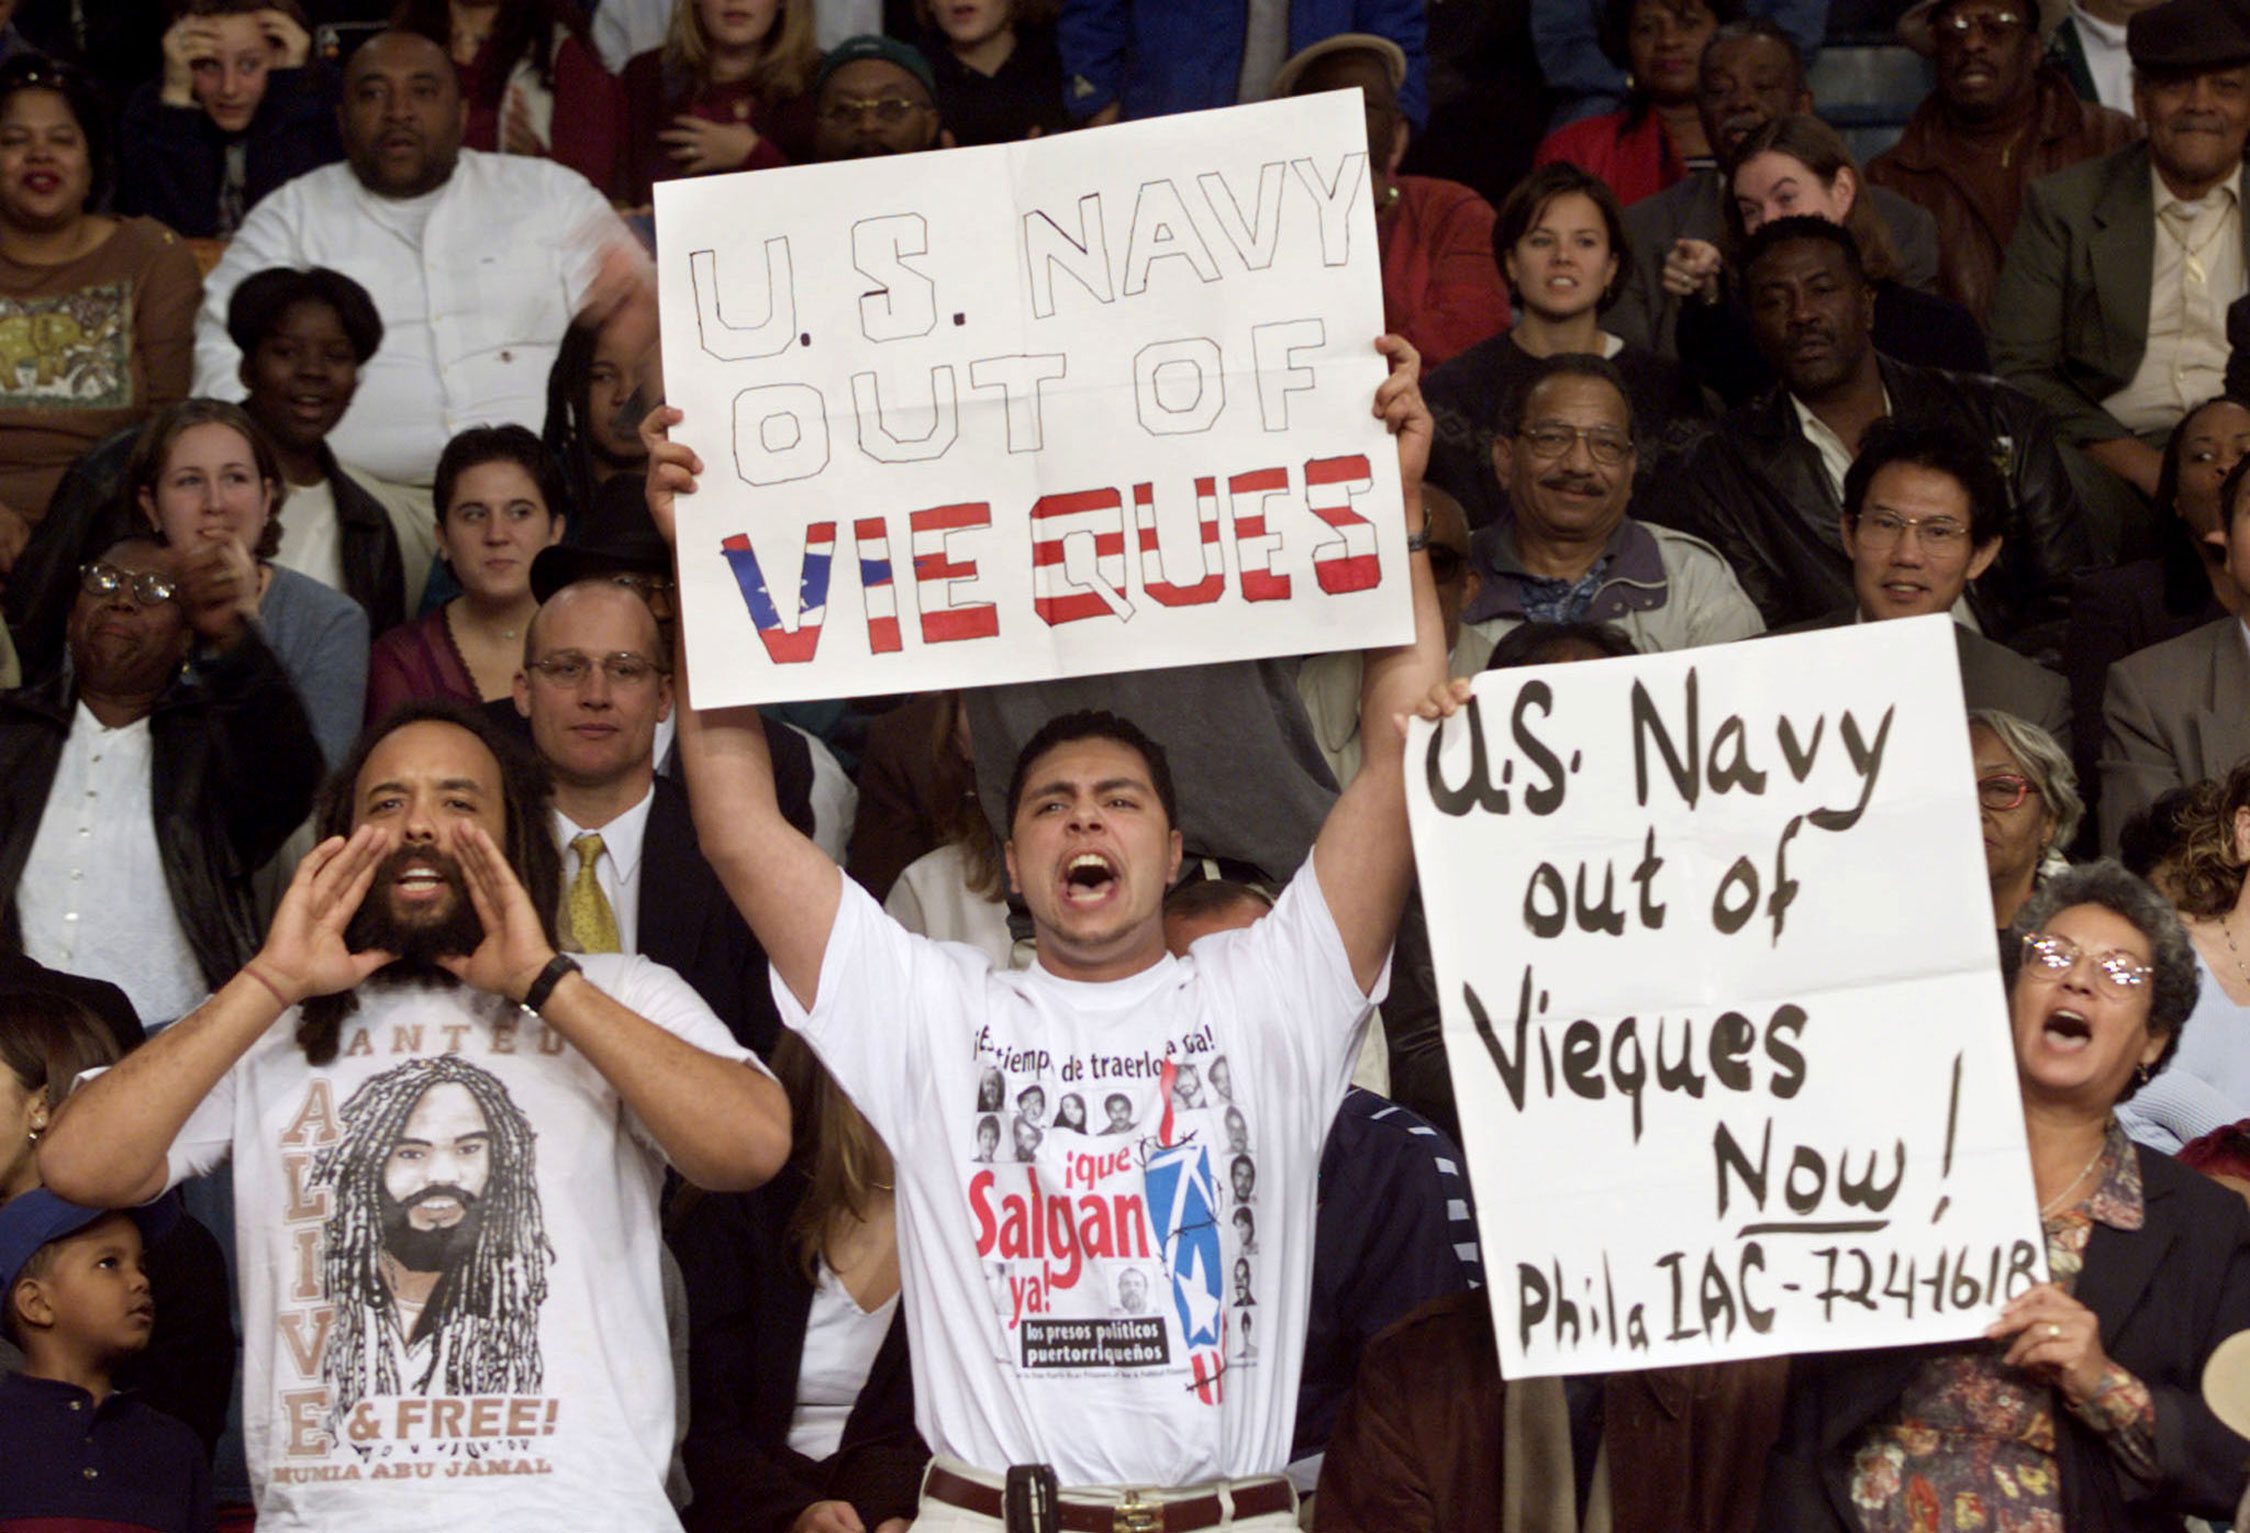 U.S. NAVY
OUT OF
VIEQUES
U.S. Navy
out of
Vieques
Now!
Phila IAC-724-1618
WANTED
ALIVE
& FREE!
MUMIA ABU JAMAL
tiempo de traerlos a ca!
¡que
Salgan
ya!
los presos políticos
puertorriqueños